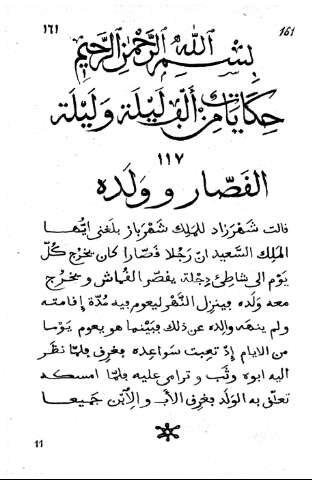 ١٦١ 161
بِسْمِ ٱللَّهِ ٱلرَّحْمٰنِ ٱلرَّحِيمِ
حِكَايَاتٌ مِنْ أَلْفِ لَيْلَة وَلَيْلَة
١١٧
القَصّار و ولده
قالت شَهْرَزاد للمَلِك شَهْرَباز بلغني ايّها
المَلِك السّعيد انّ رَجُلا قَصّارا كان يخرج كُلّ
يَوْم الى شاطئ دِجْلة يقصّر القُماش و يخرج
معه وَلَده فينزل النَّهْر ليعوم فيه مُدّة إقامته
و لم ينهه والده عن ذلك فبَيْنَما هو يعوم يَوْما
من الايام إذْ تعبت سَواعِده فغرق فلمّا نظر
اليه ابوه وثب و ترامى عليه فلمّا امسكه
تعلّق به الوَلَد فغرق الأَب و الإِبْن جَمِيعا
11